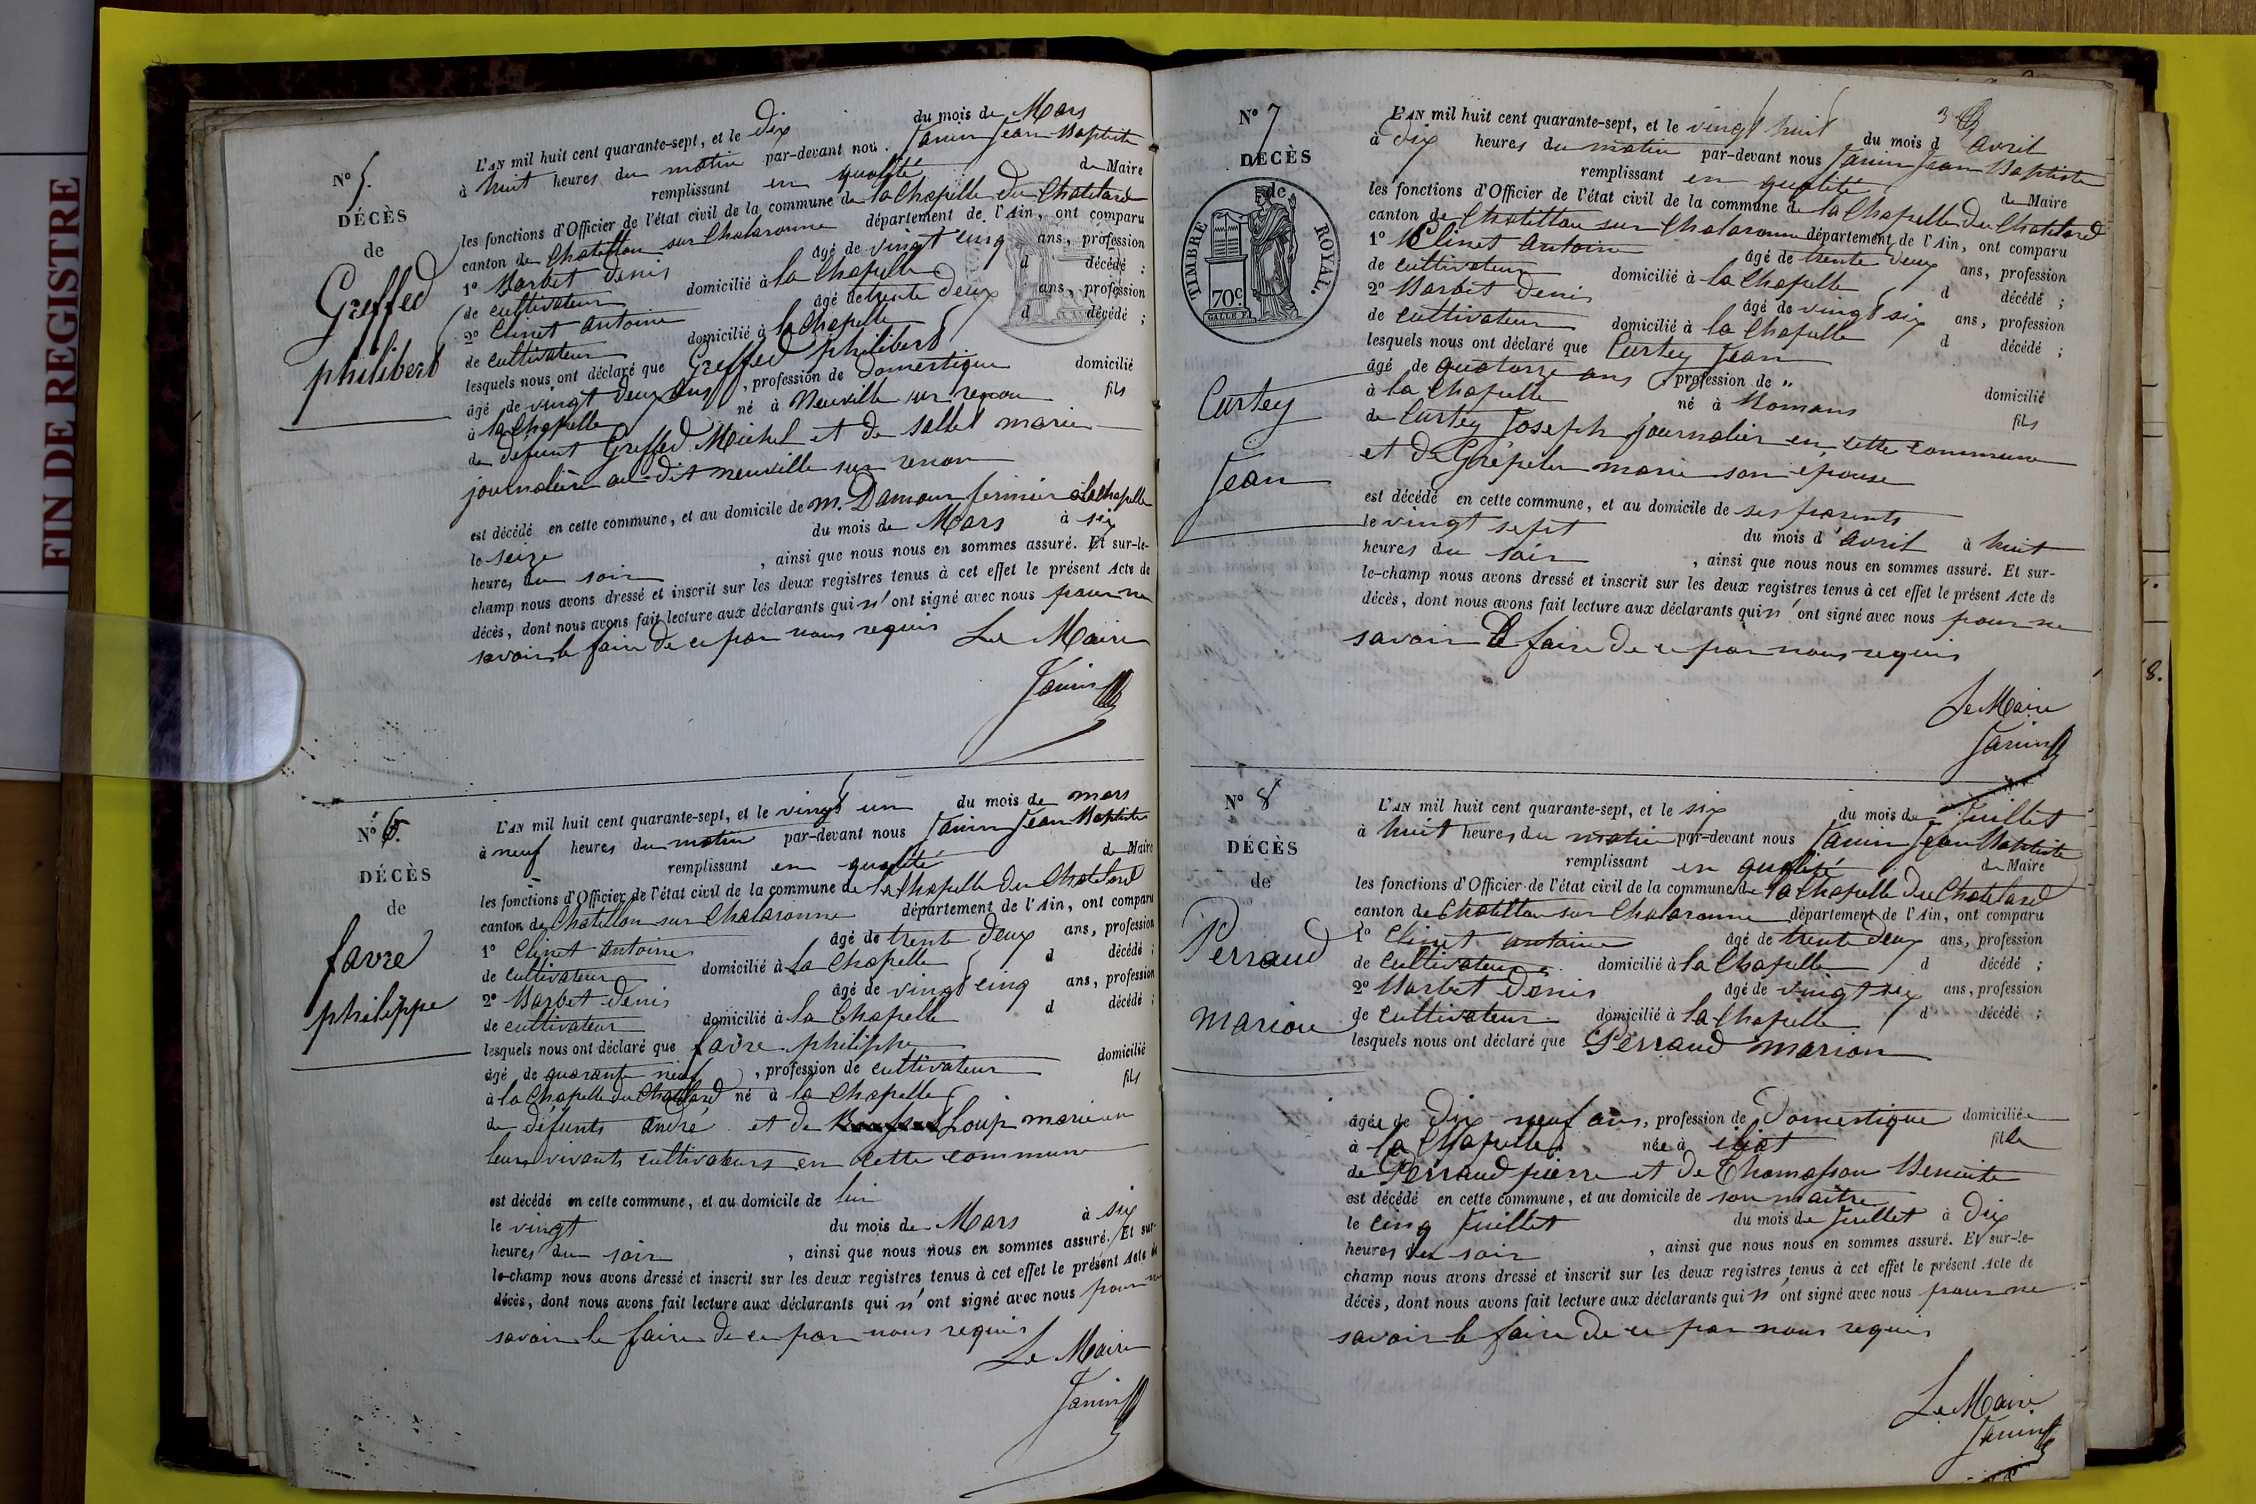 FIN DE REGISTRE
N° 5.
DÉCÈS
de
Greffed
philibert
L'AN mil huit cent quarante-sept, et le dix du mois de Mars
à huit heures du matin par-devant nous Janin Jean Baptiste
remplissant en qualité de Maire
les fonctions d'Officier de l'état civil de la commune de la Chapelle du Chatelard
canton de Chatillon sur Chalaronne département de l'Ain, ont comparu
1° Barbet Denis âgé de vingt cinq ans, profession
de cultivateur domicilié à la Chapelle d décédé ;
2° Clinet Antoine âgé de trente deux ans, profession
de cultivateur domicilié à la Chapelle d décédé ;
lesquels nous ont déclaré que Greffed philibert
âgé de vingt deux ans, profession de domestique domicilié
à la Chapelle né à Neuville sur renon fils
de défunt Greffed Michel et de Sallet marie
journalière au dit neuville sur renon
est décédé en cette commune, et au domicile de m. Damour fermier à la Chapelle
le seize du mois de Mars à six
heures du soir, ainsi que nous nous en sommes assuré. Et sur-le-
champ nous avons dressé et inscrit sur les deux registres tenus à cet effet le présent Acte de
décès, dont nous avons fait lecture aux déclarants qui n'ont signé avec nous pour ne
savoir le faire de ce par nous requis Le Maire
Janin
N° 6.
DÉCÈS
de
favre
philippe
L'AN mil huit cent quarante-sept, et le vingt un du mois de mars
à neuf heures du matin par-devant nous Janin Jean Baptiste
remplissant en qualité de Maire
les fonctions d'Officier de l'état civil de la commune de la Chapelle du Chatelard
canton de Chatillon sur Chalaronne département de l'Ain, ont comparu
1° Clinet Antoine âgé de trente deux ans, profession
de cultivateur domicilié à la Chapelle d décédé ;
2° Barbet Denis âgé de vingt cinq ans, profession
de cultivateur domicilié à la Chapelle d décédé ;
lesquels nous ont déclaré que favre philippe
âgé de quarante neuf, profession de cultivateur domicilié
à la Chapelle du Chatelard né à la Chapelle fils
de défunts andré et de Loup marie en
leurs vivants cultivateurs en cette commune
est décédé en cette commune, et au domicile de lui
le vingt du mois de Mars à six
heures du soir, ainsi que nous nous en sommes assuré. Et sur-
le-champ nous avons dressé et inscrit sur les deux registres tenus à cet effet le présent Acte de
décès, dont nous avons fait lecture aux déclarants qui n'ont signé avec nous pour ne
savoir le faire de ce par nous requis
Le Maire
Janin
N° 7
DÉCÈS
de
TIMBRE ROYAL.
70 c.
Curtey
Jean
L'AN mil huit cent quarante-sept, et le vingt huit du mois d avril
à dix heures du matin par-devant nous Janin Jean Baptiste
remplissant en qualité de Maire
les fonctions d'Officier de l'état civil de la commune de la Chapelle du Chatelard
canton de Chatillon sur Chalaronne département de l'Ain, ont comparu
1° Clinet antoine âgé de trente deux ans, profession
de cultivateur domicilié à la Chapelle d décédé ;
2° Barbet Denis âgé de vingt six ans, profession
de cultivateur domicilié à la Chapelle d décédé ;
lesquels nous ont déclaré que Curtey Jean
âgé de quatorze ans, profession de " domicilié
à la Chapelle né à Romans fils
de Curtey Joseph journalier en cette commune
et de marie son épouse
est décédé en cette commune, et au domicile de ses parents
le vingt sept du mois d'avril à huit
heures du soir, ainsi que nous nous en sommes assuré. Et sur-
le-champ nous avons dressé et inscrit sur les deux registres tenus à cet effet le présent Acte de
décès, dont nous avons fait lecture aux déclarants qui n'ont signé avec nous pour ne
savoir le faire de ce par nous requis
Le Maire
Janin
N° 8
DÉCÈS
de
Perraud
marion
L'AN mil huit cent quarante-sept, et le six du mois de Juillet
à huit heures du matin par-devant nous Janin Jean Baptiste
remplissant en qualité de Maire
les fonctions d'Officier de l'état civil de la commune de la Chapelle du Chatelard
canton de Chatillon sur Chalaronne département de l'Ain, ont comparu
1° Clinet antoine âgé de trente deux ans, profession
de cultivateur domicilié à la Chapelle d décédé ;
2° Barbet Denis âgé de vingt six ans, profession
de cultivateur domicilié à la Chapelle d décédé ;
lesquels nous ont déclaré que Perraud marion
âgée de dix neuf ans, profession de Domestique domiciliée
à la Chapelle née à fille
de Perraud pierre et de Thomasson Benoite
est décédé en cette commune, et au domicile de son maître
le cinq Juillet du mois de Juillet à dix
heures du soir, ainsi que nous nous en sommes assuré. Et sur-le-
champ nous avons dressé et inscrit sur les deux registres tenus à cet effet le présent Acte de
décès, dont nous avons fait lecture aux déclarants qui n'ont signé avec nous pour ne
savoir le faire de ce par nous requis
Le Maire
Janin
8.